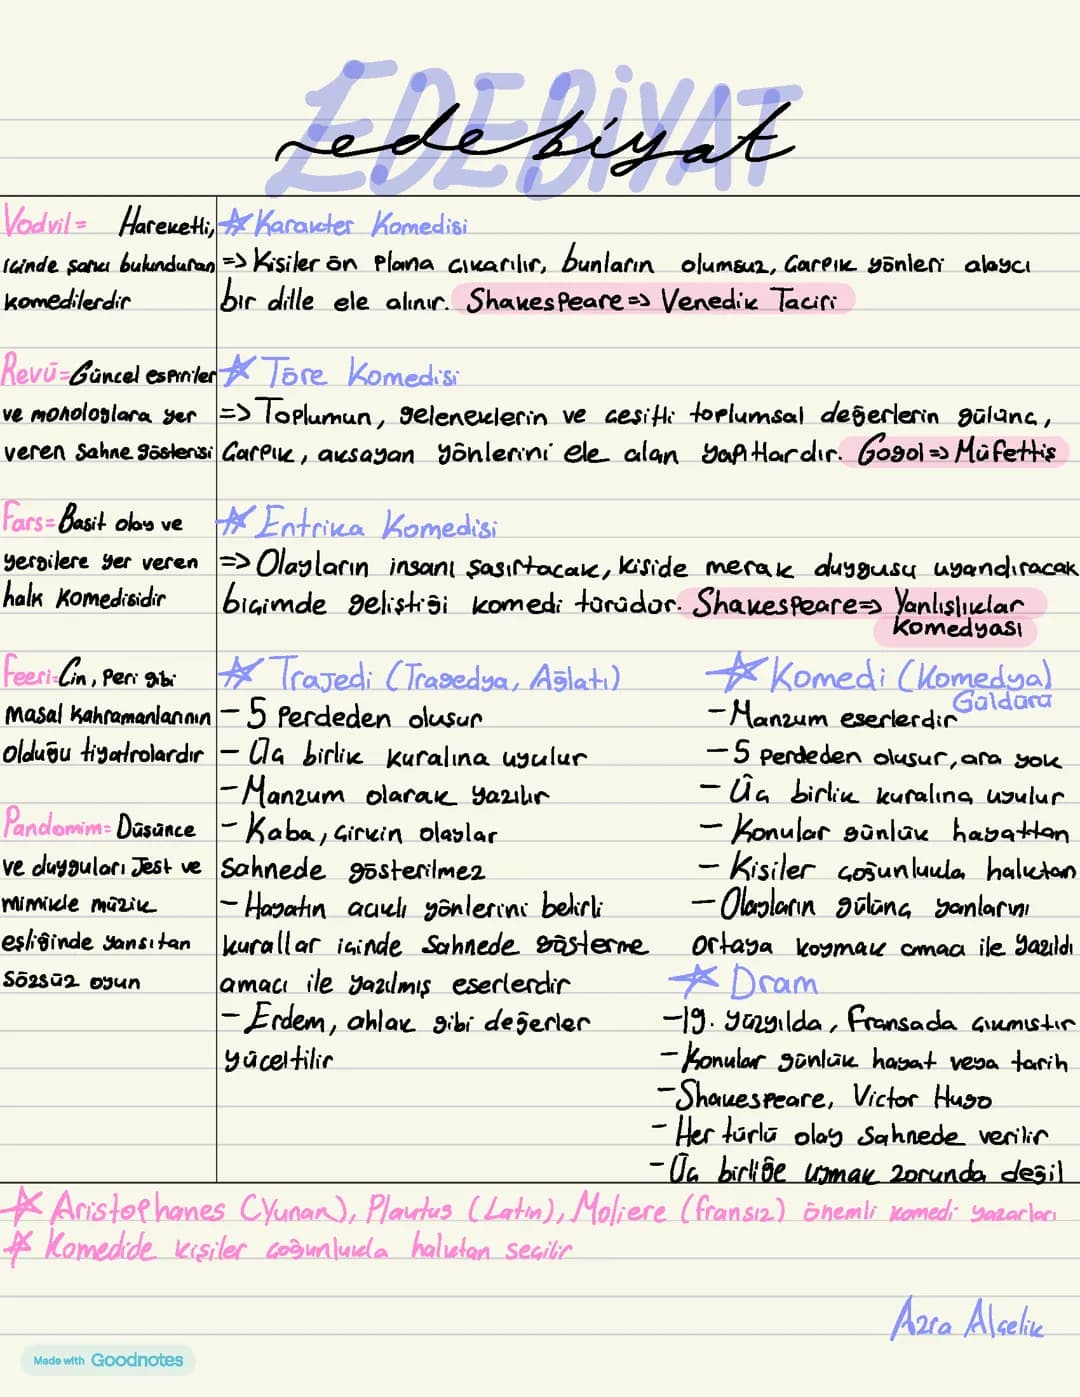 EDEBİYAT
edebiyat
Vodvil = Hareketli,
içinde şarkı bulunduran
komedilerdir
Revü = Güncel espiriler
ve monologlara yer
veren sahne gösterisi
Fars = Basit olay ve
yergilere yer veren
halk komedisidir
Feeri = Cin, Peri gibi
masal kahramanlarının
olduğu tiyatrolardır
Pandomim = Düşünce
ve duyguları jest ve
mimikle müzik
eşliğinde yansıtan
sözsüz oyun
☆ Karakter Komedisi
=> Kişiler ön plana çıkarılır, bunların olumsuz, çarpık yönleri alaycı
bir dille ele alınır. Shakespeare => Venedik Taciri
☆ Töre Komedisi
=> Toplumun, geleneklerin ve çeşitli toplumsal değerlerin gülünç,
çarpık, aksayan yönlerini ele alan yapıtlardır. Gogol => Müfettiş
☆ Entrika Komedisi
=> Olayların insanı şaşırtacak, kişide merak duygusu uyandıracak
biçimde geliştiği komedi türüdür. Shakespeare => Yanlışlıklar
Komedyası
☆ Trajedi (Tragedya, Ağlatı)
- 5 Perdeden oluşur
- Üç birlik kuralına uyulur
- Manzum olarak yazılır
- Kaba, çirkin olaylar
sahnede gösterilmez
- Hayatın acıklı yönlerini belirli
kurallar içinde sahnede gösterme
amacı ile yazılmış eserlerdir
- Erdem, ahlak gibi değerler
yüceltilir
☆ Komedi (Komedya)
Güldürü
- Manzum eserlerdir
- 5 Perdeden oluşur, ara yok
- Üç birlik kuralına uyulur
- Konular günlük hayattan
- Kişiler çoğunlukla halktan
- Olayların gülünç yanlarını
ortaya koymak amacı ile yazıldı
☆ Dram
- 19. yüzyılda, Fransada çıkmıştır
- Konular günlük hayat veya tarih
- Shakespeare, Victor Hugo
- Her türlü olay sahnede verilir
- Üç birliğe uymak zorunda değil
☆ Aristophanes (Yunan), Plautus (Latin), Moliere (fransız) önemli komedi yazarları
☆ Komedide kişiler çoğunlukla halktan seçilir
Azra Alçelik
Made with Goodnotes